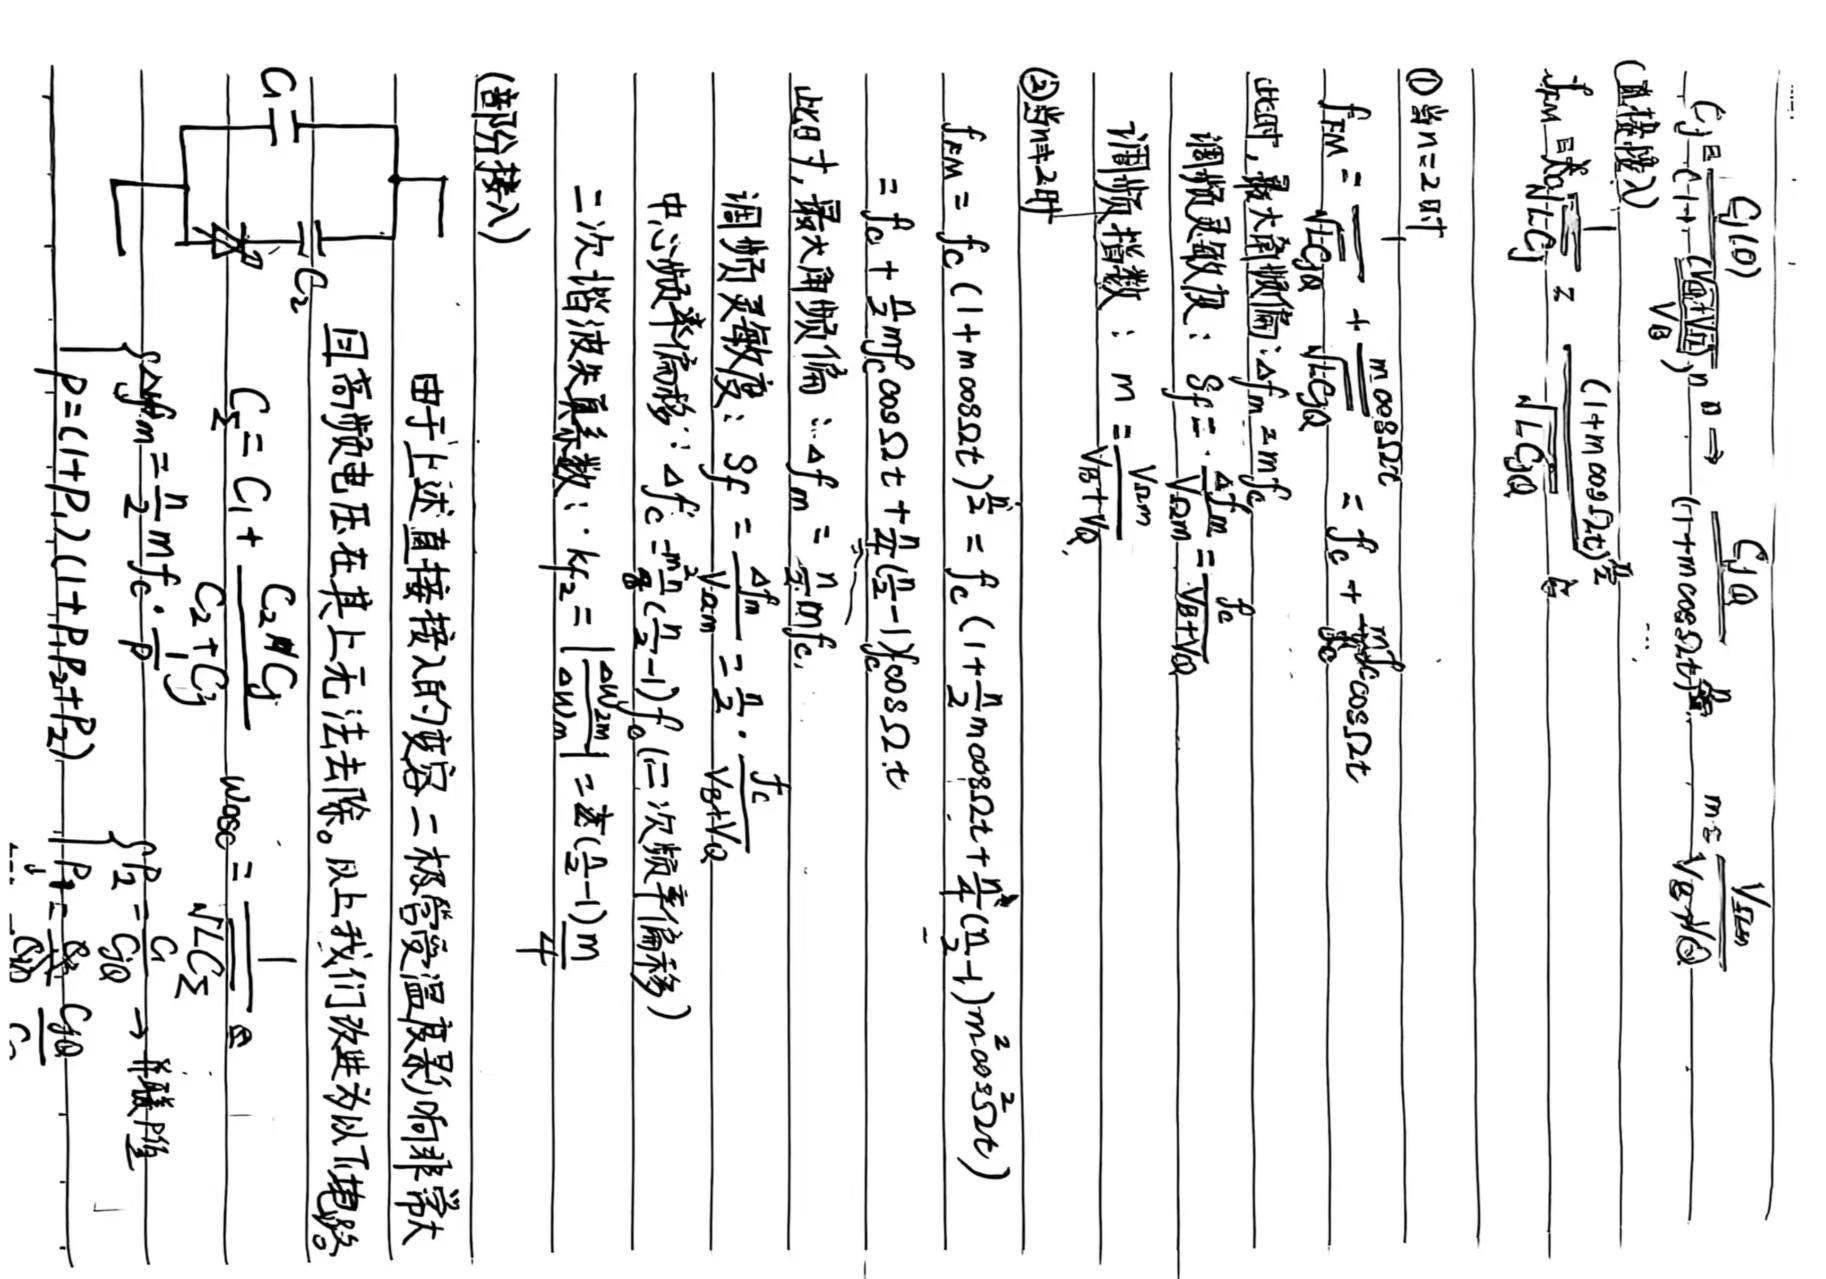 Cj = Cj(0) / (1 + (VQ+VΩ)/VB)^n → CjQ / (1+mcosΩt)^n   m = VΩm / (VB+VQ)
(直接接入)
fFM = 1/(2π√LCj) = (1+mcosΩt)^(n/2) / √LCjQ
① 当n=2时
fFM = 1/√LCjQ + mcosΩt/√LCjQ = fc + mfccosΩt
此时,最大角频偏:Δfm = mfc
调频灵敏度: Sf = Δfm/VΩm = fc/(VB+VQ)
调频指数: m = VΩm/(VB+VQ)
② 当n≠2时
fFM = fc(1+mcosΩt)^(n/2) = fc(1 + n/2 mcosΩt + n/4(n/2-1)m²cos²Ωt)
= fc + n/2 mfccosΩt + n/4(n/2-1)fccosΩt
此时,最大角频偏: Δfm = n/2 mfc.
调频灵敏度: Sf = Δfm/VΩm = n/2 · fc/(VB+VQ)
中心频率偏移: Δfc = m²n/8(n/2-1)fc (二次频率偏移)
二次谐波失真系数: kf2 = |Δw2m/Δwm| = (n/2-1)m/4
(部分接入)
由于上述直接接入的变容二极管受温度影响非常大
且高频电压在其上无法去除。以上我们改进为以下电路。
C1 C2
CΣ = C1 + C2Cj/(C2+Cj)   wosc = 1/√LCΣ
{ Δfm = n/2 mfc · 1/P   { P2 = C1/CjQ → 并联
P=(1+P1)(1+P1P2+P2)   P1 = CjQ/C2